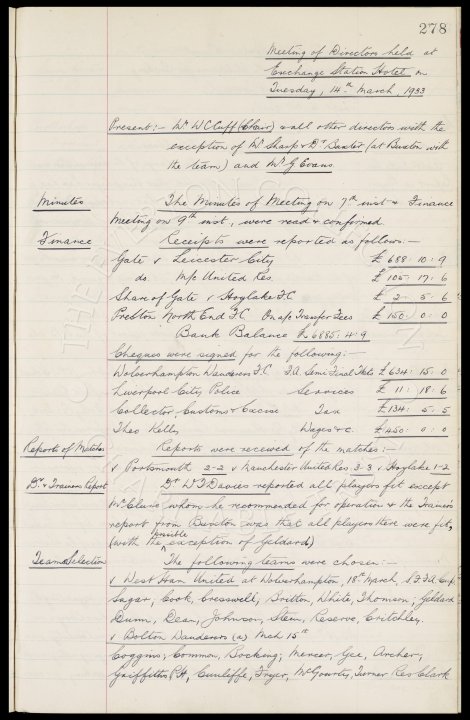 278
Meeting of Directors held at
Exchange Station Hotel on
Tuesday, 14th March, 1933
Present:- Mr W C Cuff (Chair) & all other directors with the
exception of Mr Sharp & Dr Baxter (at Buxton with
the team) and Mr G Evans
Minutes The Minutes of Meeting on 7th inst & Finance
Meeting on 9th inst, were read & confirmed
Finance Receipts were reported as follows:-
Gate v Leicester City £ 688: 10: 9
do. M/c United Res. £ 105: 17: 6
Share of Gate v Hoylake F.C £ 2: 5: 6
Preston North End F.C On a/c Transfer Fees £ 150: 0: 0
Bank Balance £ 6885: 4: 9
Cheques were signed for the following:-
Wolverhampton Wanderers F.C F.A. Semi Final Tkts £ 634: 15: 0
Liverpool City Police Services £ 11: 18: 6
Collector, Customs & Excise Tax £ 134: 5: 5
Theo Kelly Wages &c. £ 450: 0: 0
Reports of Matches Reports were received of the matches:-
v Portsmouth 2-2 v Manchester United Res 3-3 v Hoylake 1-2
Dr & Trainers Report Dr W J Davies reported all players fit except
whom he recommended for operation & the Trainer's
report from Buxton was that all players there were fit,
(with the possible exception of Geldard)
Team Selection The following teams were chosen:-
v West Ham United at Wolverhampton, 18th March, F.A. Cup.
Sagar, Cook, Cresswell, Britton, White, Thomson, Geldard
Dunn, Dean, Johnson, Stein, Reserve, Critchley.
v Bolton Wanderers (a) Mch 15th
Coggins; Common, Bocking; Mercer, Gee, Archer;
Griffiths P.H, Cunliffe, Fryer, McGourty, Turner Res Clark